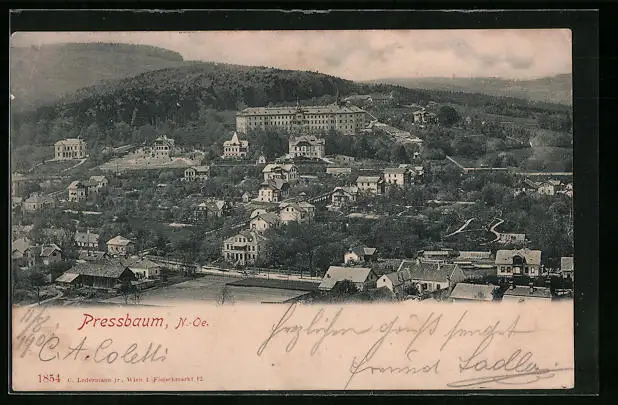 Pressbaum, N.-Oe.
C. A. Coletti
Herzlichen Gruß sendet
Freund Sadller
1854 C. Ledermann jr., Wien I. Fleischmarkt 12.